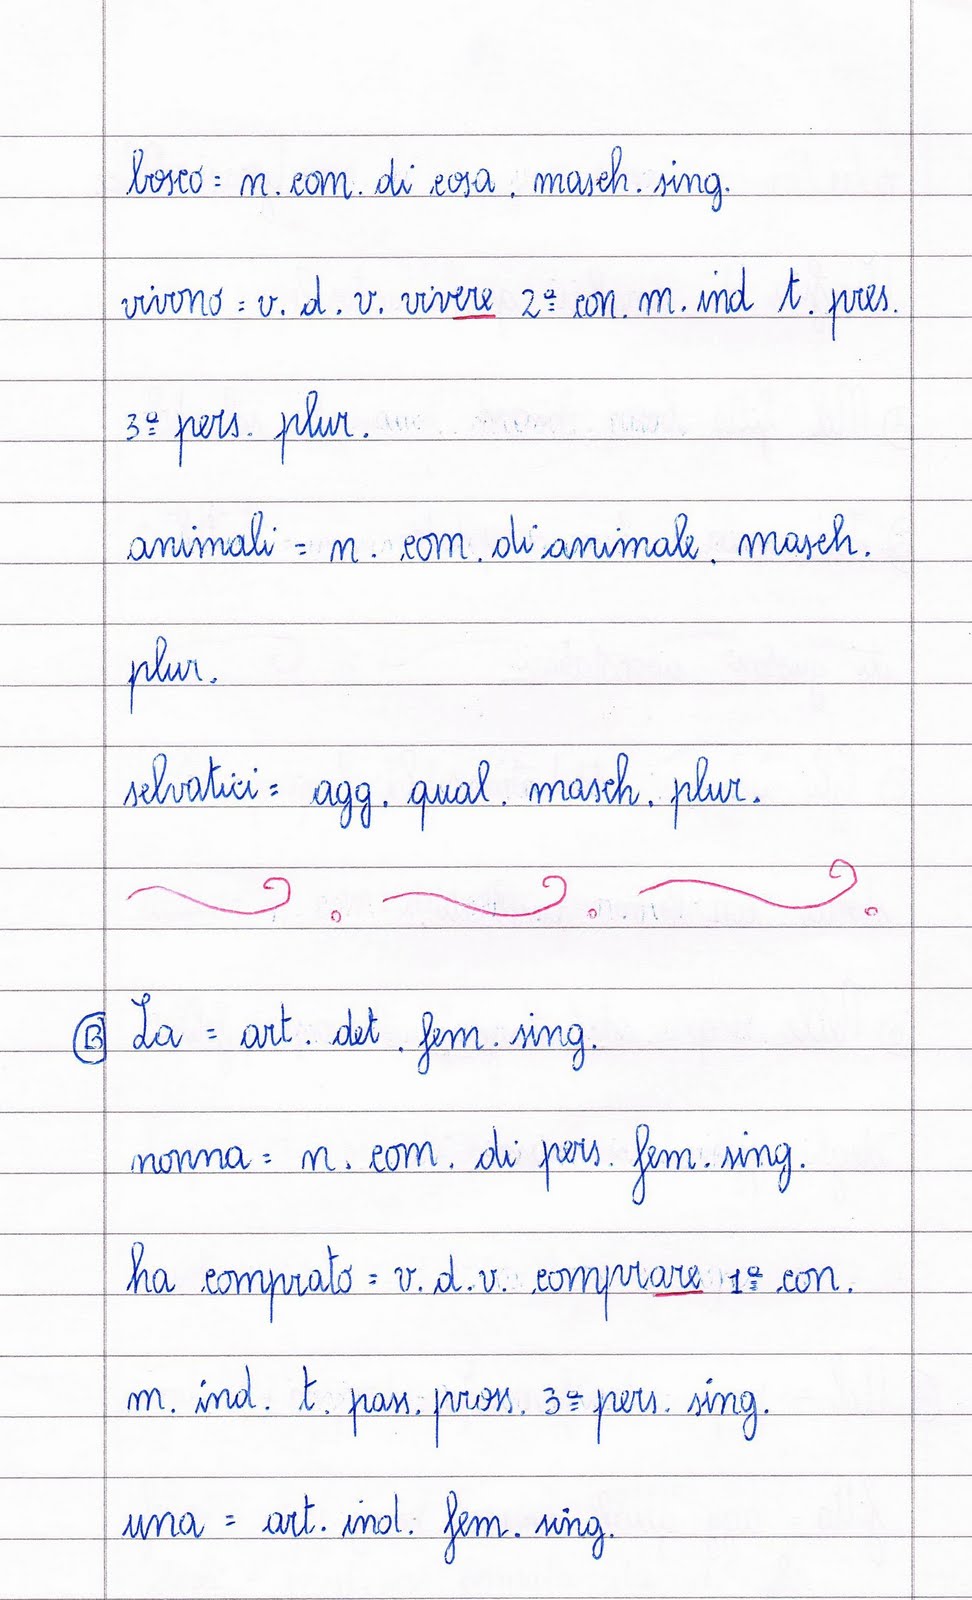 bosco = n. com. di cosa. masch. sing.
vivono = v. d. v. vivere 2ª con. m. ind t. pres.
3ª pers. plur.
animali = n. com. di animale. masch.
plur.
selvatici = agg. qual. masch. plur.
B La = art. det. fem. sing.
nonna = n. com. di pers. fem. sing.
ha comprato = v. d. v. comprare 1ª con.
m. ind. t. pass. pross. 3ª pers. sing.
una = art. ind. fem. sing.